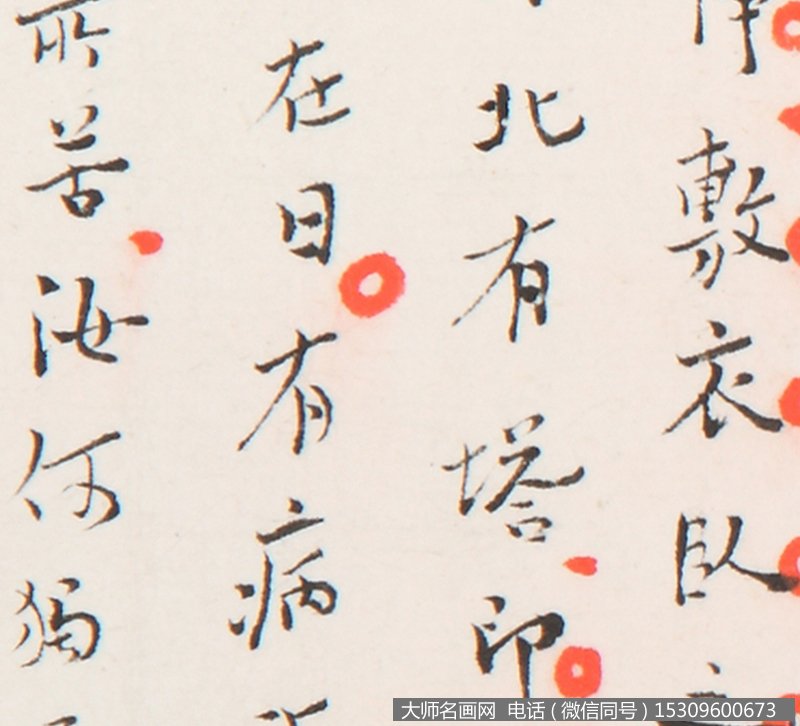 敷衣臥
北有塔印
在日有病
所苦汝何獨
大师名画网 电话（微信同号）15309600673